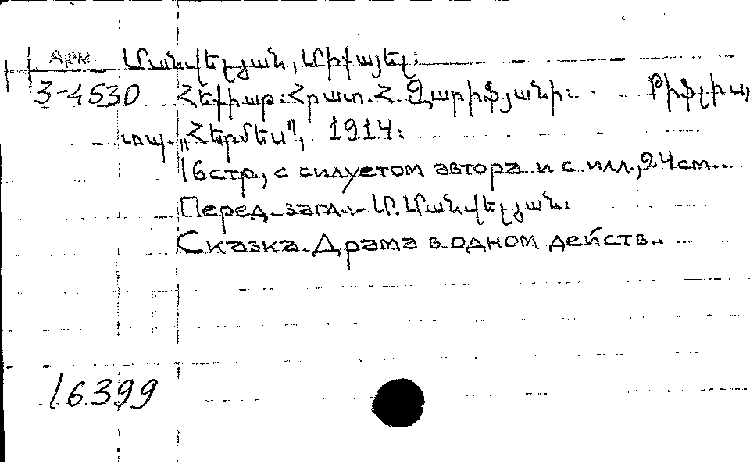 Арм
Մանվելյան, Միքայել:
3-4530 Հեքիաթ: Հրատ. Հ. Զարիֆյանի: Թիֆլիս,
տպ. „Հերմես", 1914:
16стр, с силуетом автора и с илл., 24см.
Перед загл.: Մ. Մանվելյան:
Сказка. Драма в одном действ.
16.399